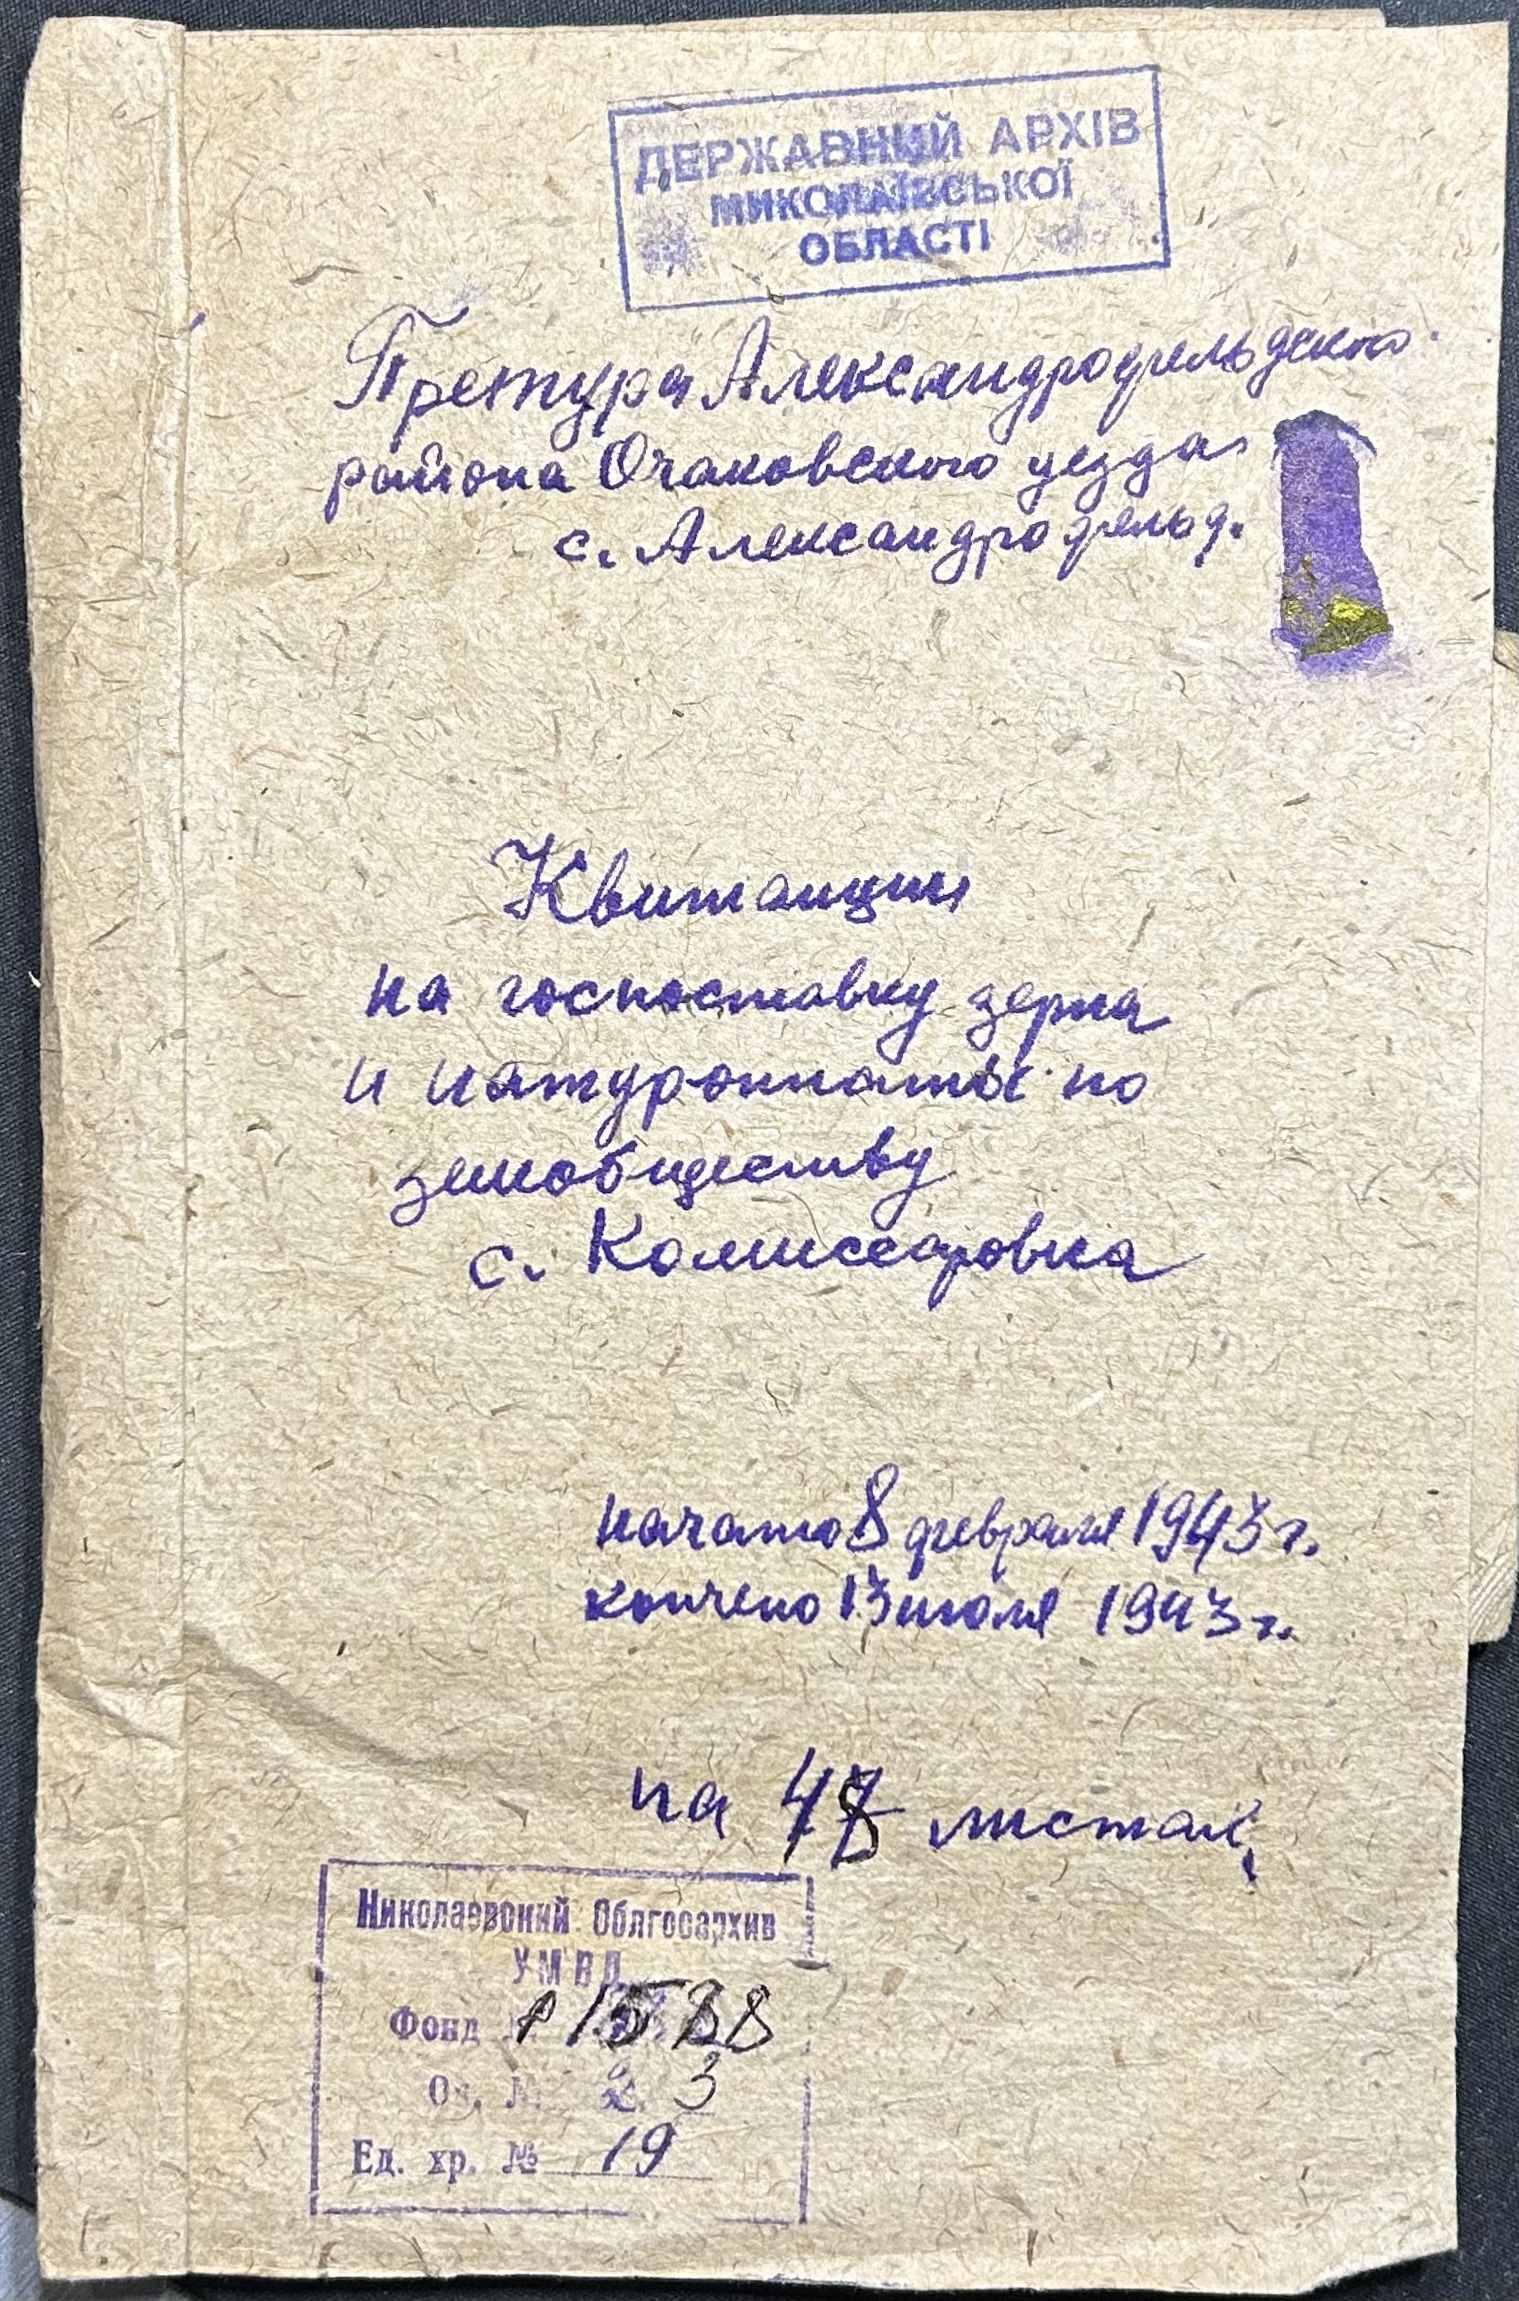 ДЕРЖАВНИЙ АРХІВ
МИКОЛАЇВСЬКОЇ
ОБЛАСТІ
Претура Александрофельдского
района Очаковского уезда
с. Александрофельд.
Квитанции
на госпоставку зерна
и натуроплаты по
земобществу
с. Комиссаровка
начато 8 февраля 1943 г.
кончено 13 июля 1943 г.
на 48 листах
Николаевский Облгосархив
УМВД
Фонд № Р1538
Оп. № 3
Ед. хр. № 19